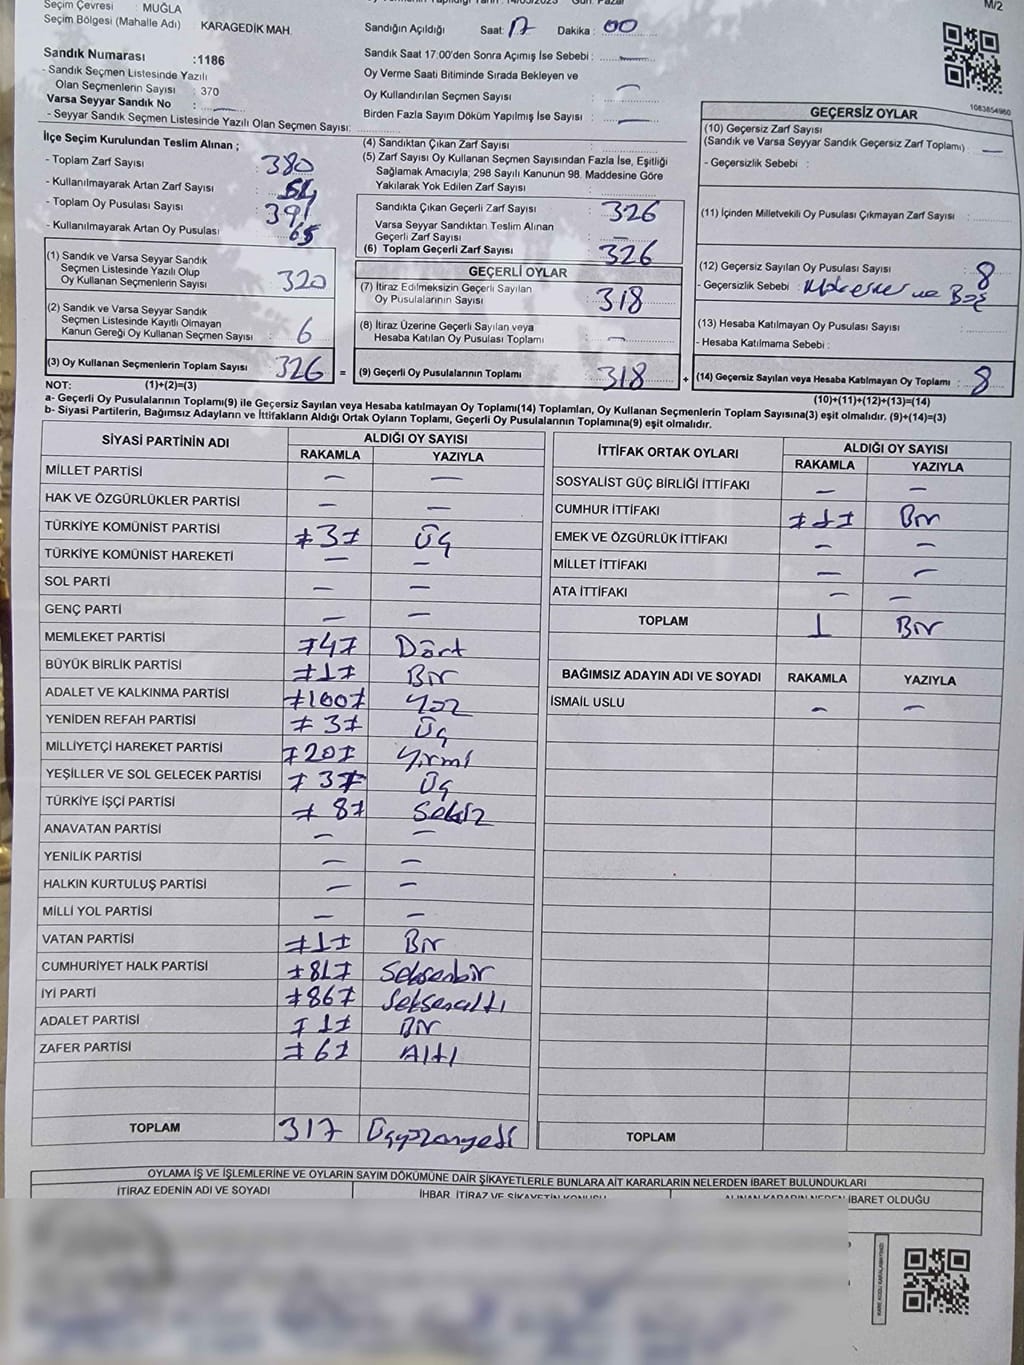 Seçim Çevresi : MUĞLA
Seçim Bölgesi (Mahalle Adı) KARAGEDİK MAH.
M/2
Sandığın Açıldığı Saat: 17 Dakika : 00
Sandık Saat 17:00'den Sonra Açımış İse Sebebi : —
Sandık Numarası :1186
- Sandık Seçmen Listesinde Yazılı
Olan Seçmenlerin Sayısı : 370
Varsa Seyyar Sandık No : —
- Seyyar Sandık Seçmen Listesinde Yazılı Olan Seçmen Sayısı:
Oy Verme Saati Bitiminde Sırada Bekleyen ve
Oy Kullandırılan Seçmen Sayısı : —
Birden Fazla Sayım Döküm Yapılmış İse Sayısı : —
1083854960
İlçe Seçim Kurulundan Teslim Alınan ;
- Toplam Zarf Sayısı : 380
- Kullanılmayarak Artan Zarf Sayısı : 54
- Toplam Oy Pusulası Sayısı : 391
- Kullanılmayarak Artan Oy Pusulası : 65
(1) Sandık ve Varsa Seyyar Sandık
Seçmen Listesinde Yazılı Olup
Oy Kullanan Seçmen Sayısı : 320
(2) Sandık ve Varsa Seyyar Sandık
Seçmen Listesinde Kayıtlı Olmayan
Kanun Gereği Oy Kullanan Seçmen Sayısı : 6
(3) Oy Kullanan Seçmenlerin Toplam Sayısı : 326 =
(4) Sandıktan Çıkan Zarf Sayısı :
(5) Zarf Sayısı Oy Kullanan Seçmen Sayısından Fazla İse, Eşitliği
Sağlamak Amacıyla; 298 Sayılı Kanunun 98. Maddesine Göre
Yakılarak Yok Edilen Zarf Sayısı :
Sandıkta Çıkan Geçerli Zarf Sayısı : 326
Varsa Seyyar Sandıktan Teslim Alınan
Geçerli Zarf Sayısı : —
(6) Toplam Geçerli Zarf Sayısı : 326
GEÇERLİ OYLAR
(7) İtiraz Edilmeksizin Geçerli Sayılan
Oy Pusulalarının Sayısı : 318
(8) İtiraz Üzerine Geçerli Sayılan veya
Hesaba Katılan Oy Pusulası Toplamı : —
(9) Geçerli Oy Pusulalarının Toplamı : 318 +
GEÇERSİZ OYLAR
(10) Geçersiz Zarf Sayısı
(Sandık ve Varsa Seyyar Sandık Geçersiz Zarf Toplamı) : —
- Geçersizlik Sebebi :
(11) İçinden Milletvekili Oy Pusulası Çıkmayan Zarf Sayısı :
(12) Geçersiz Sayılan Oy Pusulası Sayısı : 8
- Geçersizlik Sebebi : ve Boş
(13) Hesaba Katılmayan Oy Pusulası Sayısı :
- Hesaba Katılmama Sebebi :
(14) Geçersiz Sayılan veya Hesaba Katılmayan Oy Toplamı : 8
NOT: (1)+(2)=(3) (10)+(11)+(12)+(13)=(14)
a- Geçerli Oy Pusulalarının Toplamı(9) ile Geçersiz Sayılan veya Hesaba katılmayan Oy Toplamı(14) Toplamları, Oy Kullanan Seçmenlerin Toplam Sayısına(3) eşit olmalıdır. (9)+(14)=(3)
b- Siyasi Partilerin, Bağımsız Adayların ve İttifakların Aldığı Ortak Oyların Toplamı, Geçerli Oy Pusulalarının Toplamına(9) eşit olmalıdır.
SİYASİ PARTİNİN ADI ALDIĞI OY SAYISI
RAKAMLA YAZIYLA
MİLLET PARTİSİ — —
HAK VE ÖZGÜRLÜKLER PARTİSİ — —
TÜRKİYE KOMÜNİST PARTİSİ ≠3≠ Üç
TÜRKİYE KOMÜNİST HAREKETİ — —
SOL PARTİ — —
GENÇ PARTİ — —
MEMLEKET PARTİSİ ≠4≠ Dört
BÜYÜK BİRLİK PARTİSİ ≠1≠ Bir
ADALET VE KALKINMA PARTİSİ ≠100≠ Yüz
YENİDEN REFAH PARTİSİ ≠3≠ Üç
MİLLİYETÇİ HAREKET PARTİSİ ≠20≠ Yirmi
YEŞİLLER VE SOL GELECEK PARTİSİ ≠3≠ Üç
TÜRKİYE İŞÇİ PARTİSİ ≠8≠ Sekiz
ANAVATAN PARTİSİ — —
YENİLİK PARTİSİ — —
HALKIN KURTULUŞ PARTİSİ — —
MİLLİ YOL PARTİSİ — —
VATAN PARTİSİ ≠1≠ Bir
CUMHURİYET HALK PARTİSİ ≠81≠ Seksenbir
İYİ PARTİ ≠86≠ Seksenaltı
ADALET PARTİSİ ≠1≠ Bir
ZAFER PARTİSİ ≠6≠ Altı
TOPLAM 317 Üçyüzonyedi
İTTİFAK ORTAK OYLARI ALDIĞI OY SAYISI
RAKAMLA YAZIYLA
SOSYALİST GÜÇ BİRLİĞİ İTTİFAKI — —
CUMHUR İTTİFAKI ≠1≠ Bir
EMEK VE ÖZGÜRLÜK İTTİFAKI — —
MİLLET İTTİFAKI — —
ATA İTTİFAKI — —
TOPLAM 1 Bir
BAĞIMSIZ ADAYIN ADI VE SOYADI RAKAMLA YAZIYLA
İSMAİL USLU — —
TOPLAM
OYLAMA İŞ VE İŞLEMLERİNE VE OYLARIN SAYIM DÖKÜMÜNE DAİR ŞİKAYETLERLE BUNLARA AİT KARARLARIN NELERDEN İBARET BULUNDUKLARI
İTİRAZ EDENİN ADI VE SOYADI İHBAR, İTİRAZ VE ŞİKAYETİN KONUSU ALINAN KARARIN NEDEN İBARET OLDUĞU